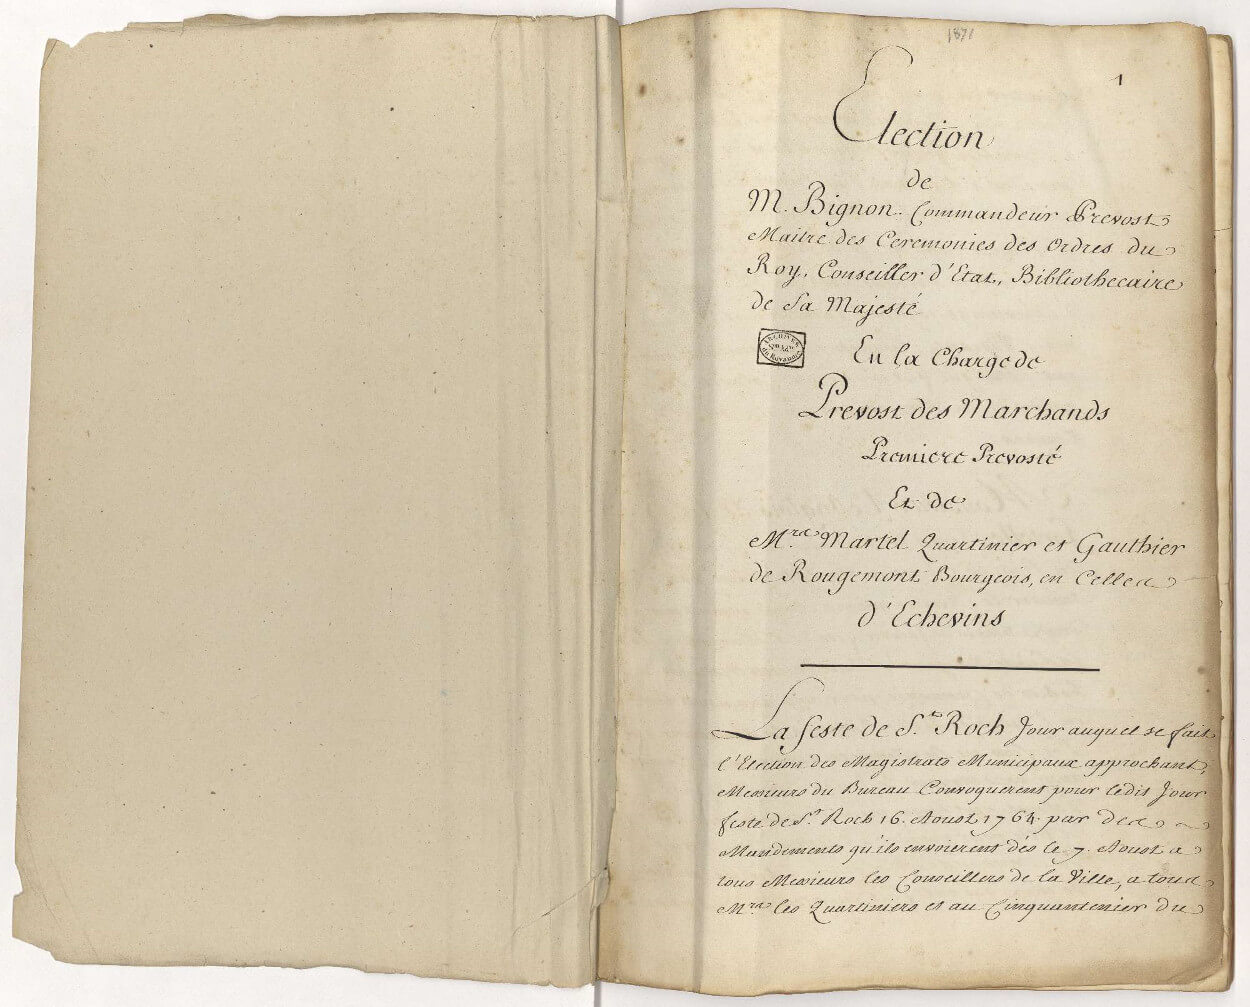 1871
1
Election
de
M. Bignon. Commandeur Prevost
Maitre des Ceremonies des Ordres du
Roy, Conseiller d'Etat, Bibliothecaire
de Sa Majesté
ARCHIVES
du Royaume
En la Charge de
Prevost des Marchands
Premiere Prevosté
Et de
Mrs Martel Quartinier et Gauthier
de Rougemont Bourgeois, en Celles
d'Echevins
La feste de St Roch Jour auquel se fait
l'Election des Magistrats Municipaux approchant,
Messieurs du Bureau Convoquerent pour ledit Jour
feste de St Roch 16. Aoust 1764 par des
Mandements qu'ils envoierent dès le 7. Aoust a
tous Messieurs les Conseillers de la Ville, a tous
Mrs les Quartiniers et au Cinquantenier du